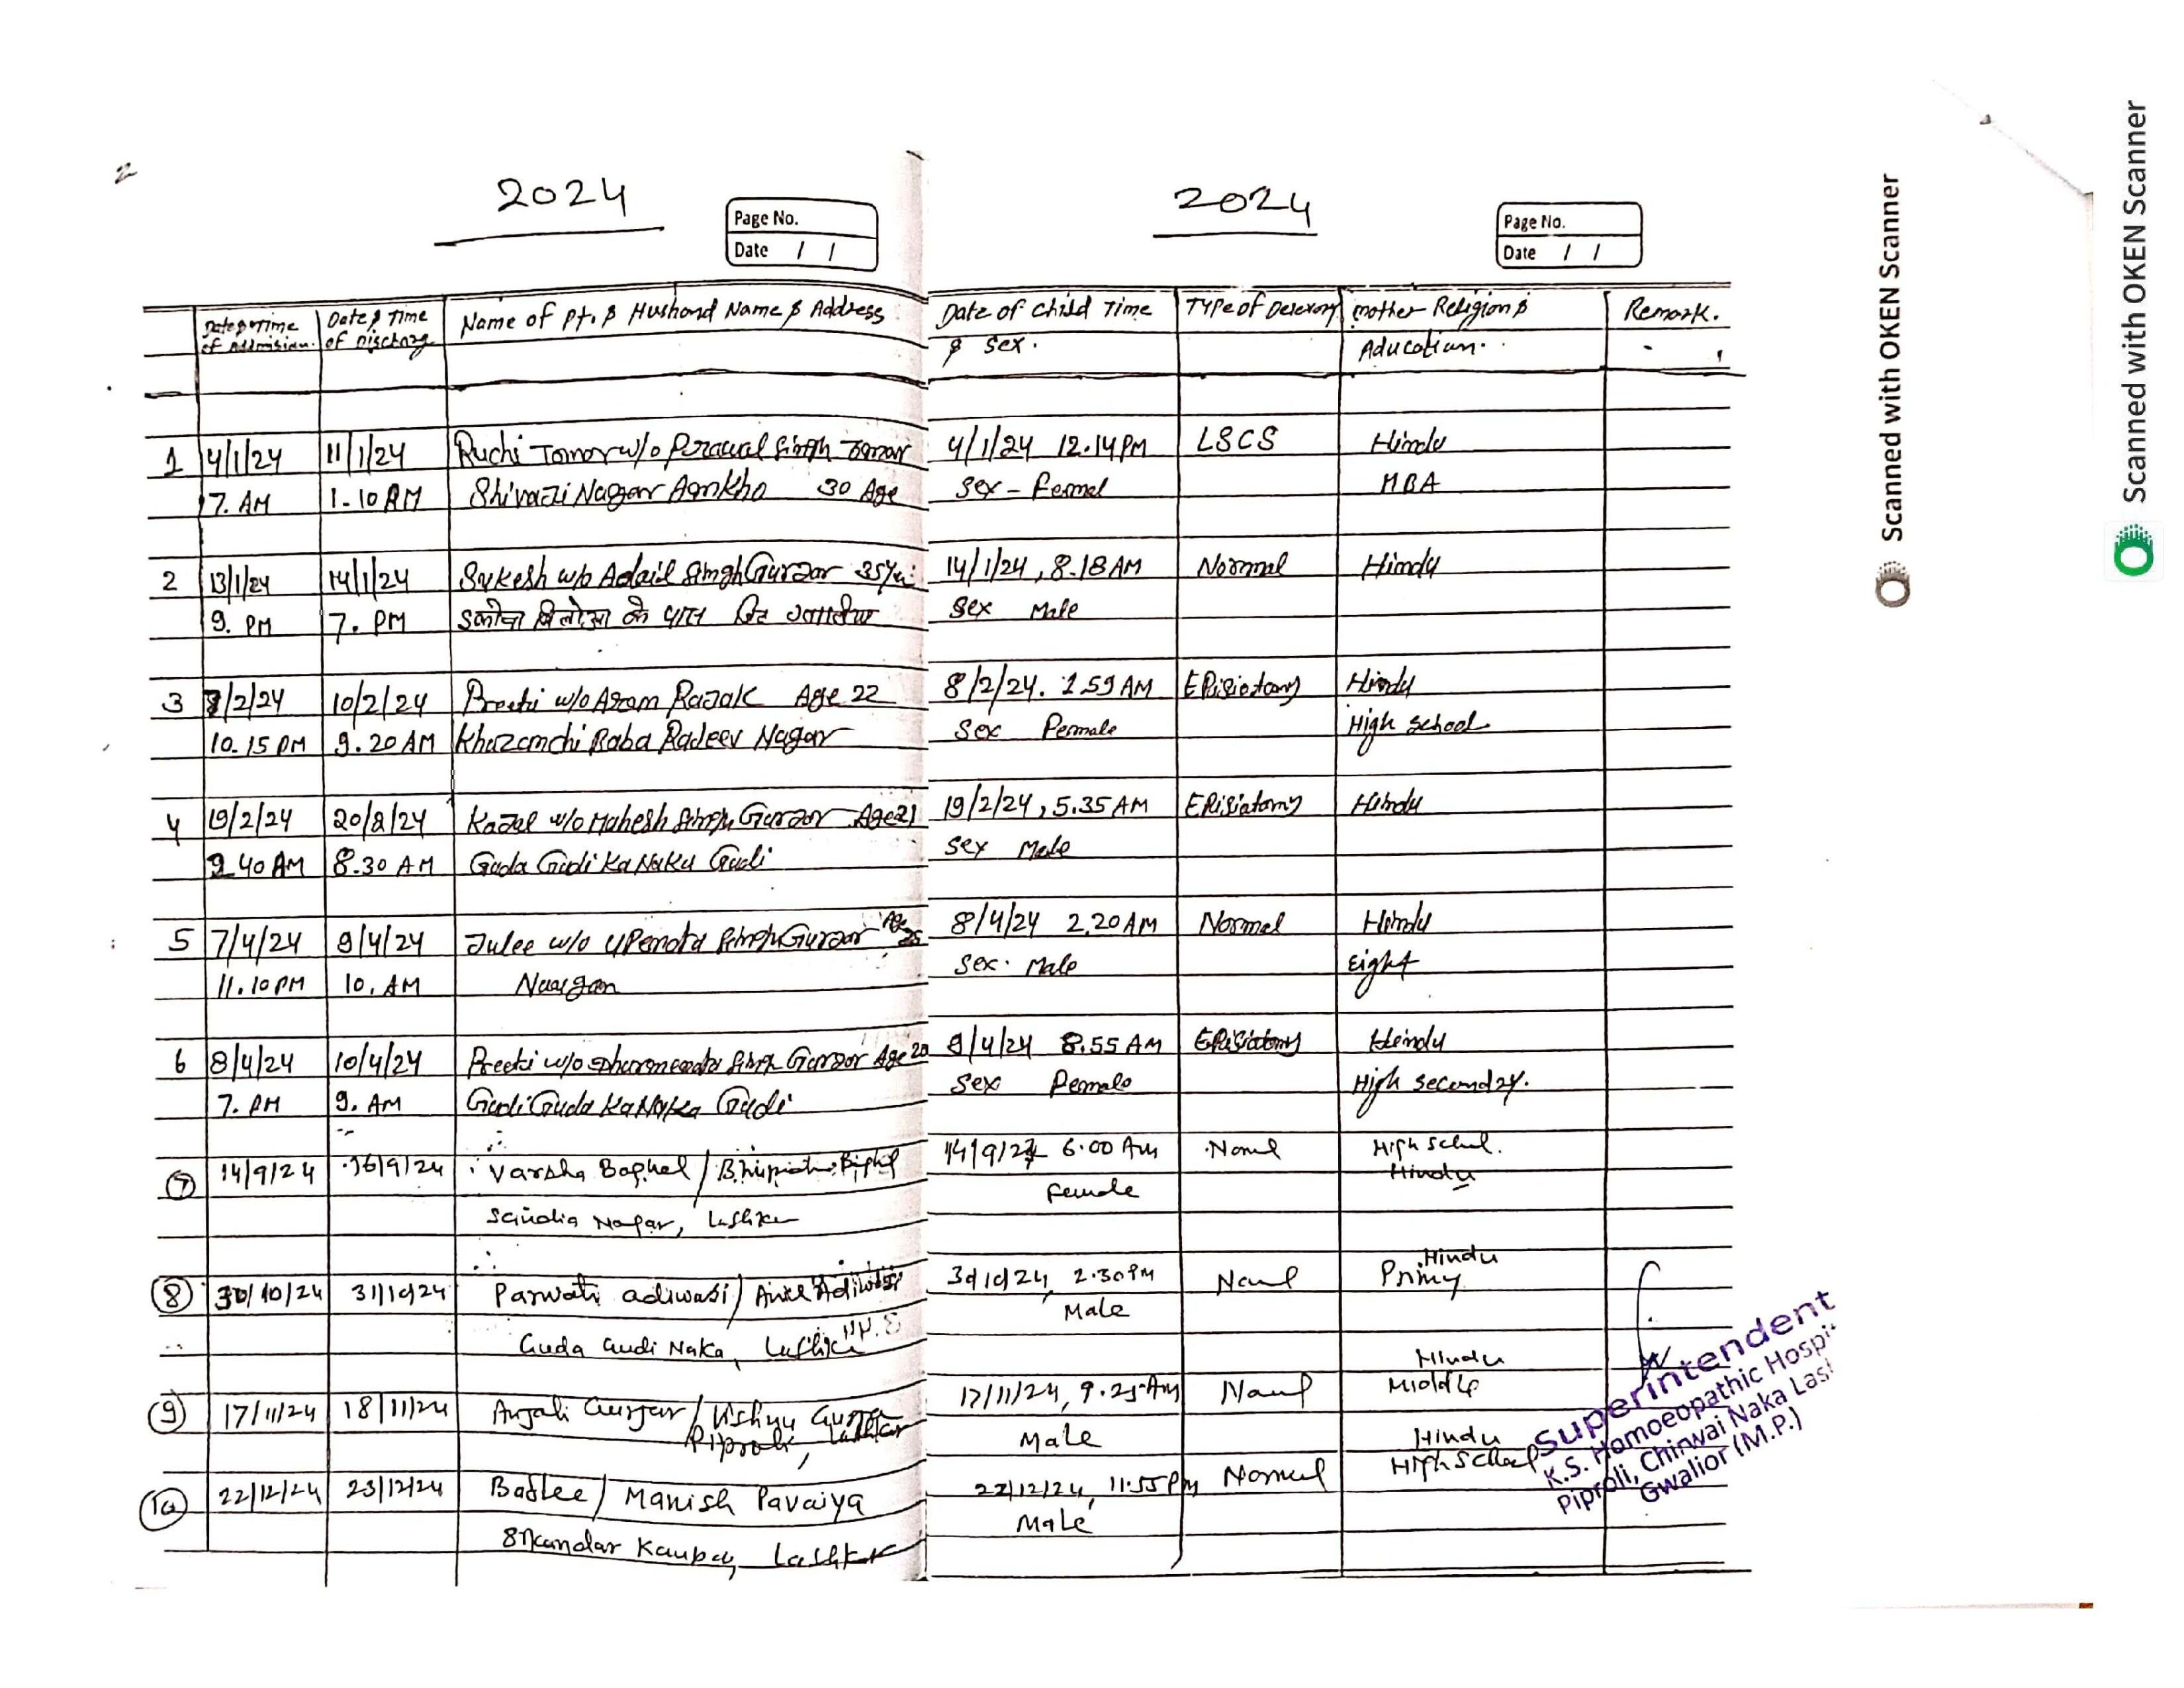 2
2024
Page No.
Date / /
Date & Time of Admision.
Date & Time of Discharge
Name of Pt. & Husband Name & Address
1 4/1/24 11/1/24 Ruchi Tomar w/o Singh Tomar
7. AM 1.10 AM Nagar 30 Age
2 13/1/24 14/1/24 w/o Singh Gurzar 35
9. PM 7. PM के पास
3 /2/24 10/2/24 Preeti w/o Azam Razak Age 22
10.15 PM 9.20 AM Khazanchi Baba Nagar
4 19/2/24 20/2/24 Kazal w/o Mahesh Singh Gurzar Age 21
9.40 AM 8.30 AM Guda Gudi Ka Naka Gudi
5 7/4/24 9/4/24 Julee w/o Upendra Singh Gurzar
11.10 PM 10. AM
6 8/4/24 10/4/24 Preeti w/o Singh Gurzar Age 20
7. PM 9. AM Gudi Guda Ka Naka Gudi
7 14/9/24 16/9/24 Varsha Baghel /
Scindia Nagar, Lashkar
8 30/10/24 31/10/24 Parwati adiwasi / Adiwasi
Guda Gudi Naka,
9 17/11/24 18/11/24 Anjali Gurjar / Vishnu Gurjar
Piproli, Lashkar
10 22/12/24 23/12/24 / Manish Pavaiya
Lashkar
2024
Page No.
Date / /
Date of Child Time Type of mother Religion & Remark.
& Sex. Aducation.
4/1/24 12.14 PM LSCS Hindu
Sex - Femal MBA
14/1/24, 8.18 AM Normal Hindu
Sex Male
8/2/24. 1.59 AM Episiotomy Hindu
Sex Female High School
19/2/24, 5.35 AM Episiotomy Hindu
Sex Male
8/4/24 2.20 AM Normal Hindu
Sex. Male Eight
9/4/24 8.55 AM Hindu
Sex Female High
14/9/24 6.00 Am High
Female Hindu
Hindu
30/10/24, 2.30 PM
Male
Hindu
17/11/24, 9.25 Am Middle
Male Hindu
22/12/24, 11.55 PM Normal
Male
Superintendent
K.S. Homoeopathic Hospi
Piproli, Chirwai Naka Las
Gwalior (M.P.)
Scanned with OKEN Scanner
Scanned with OKEN Scanner